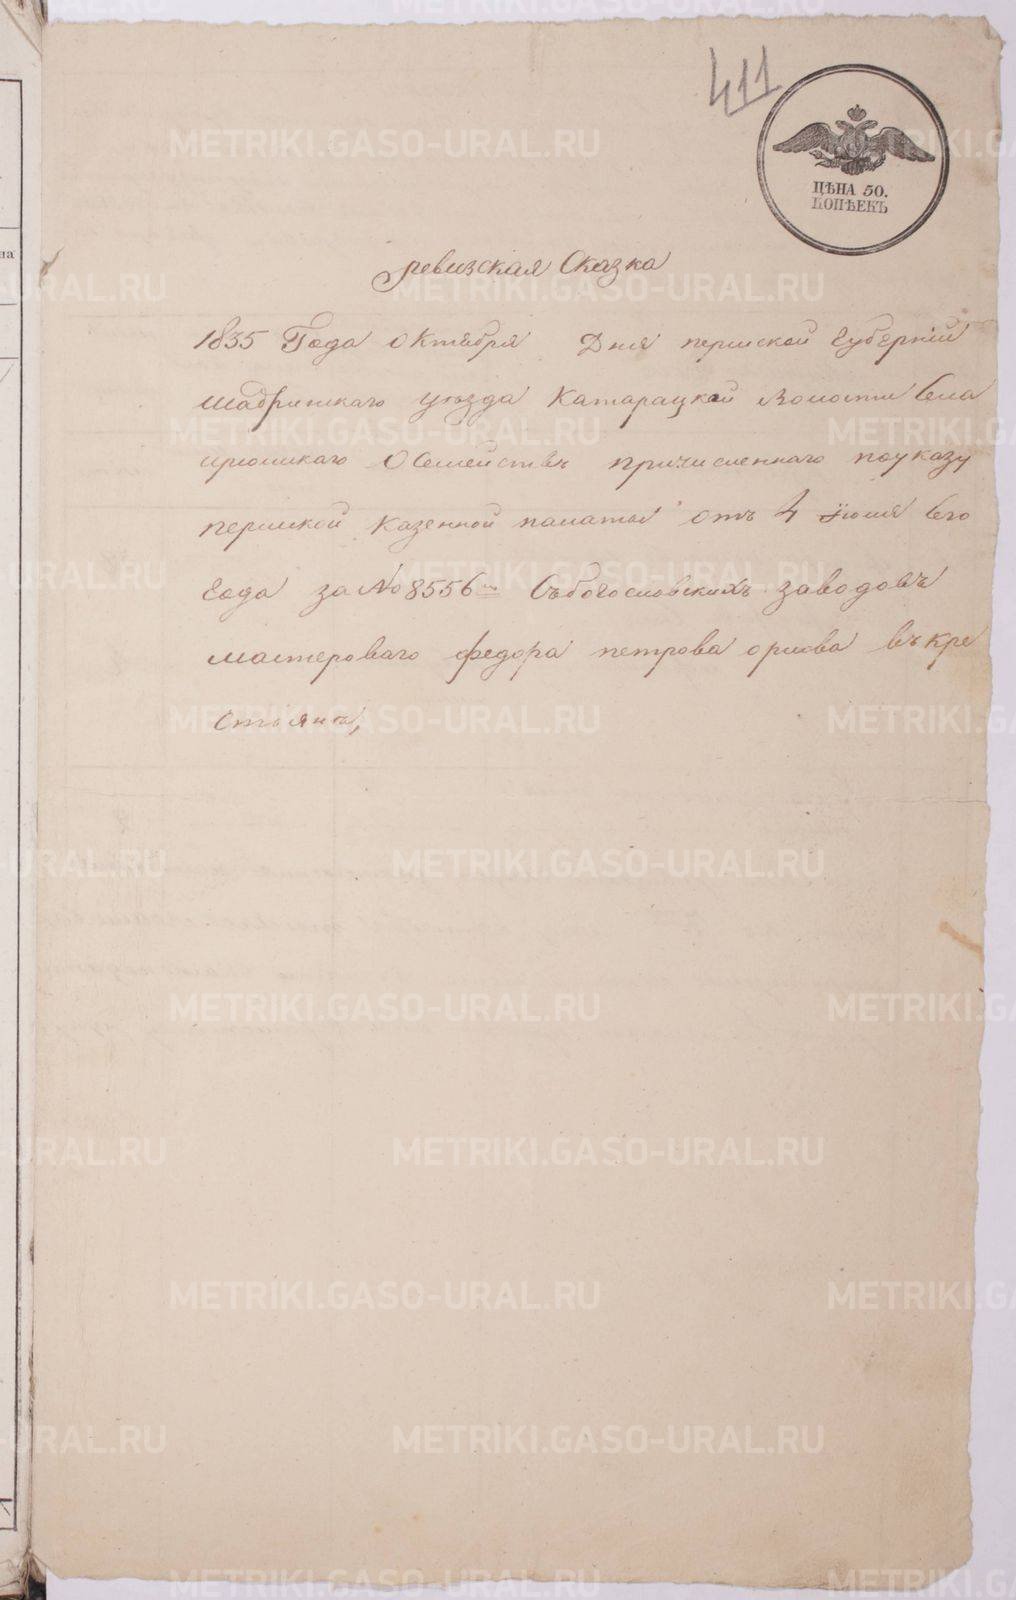 411
ЦѢНА 50.
КОПѢЕКЪ
ревизская Сказка
1835 Года октября Дня пермской Губернии
шадринскаго уезда Катарацкой Волости Села
ирюмскаго О Семействѣ причисленнаго поуказу
пермской казенной палаты отъ 4 июня Сего
Года за №8556мъ Събогословскихъ заводовъ
мастероваго федора петрова орлова въкре
стьяна,
на
METRIKI.GASO-URAL.RU